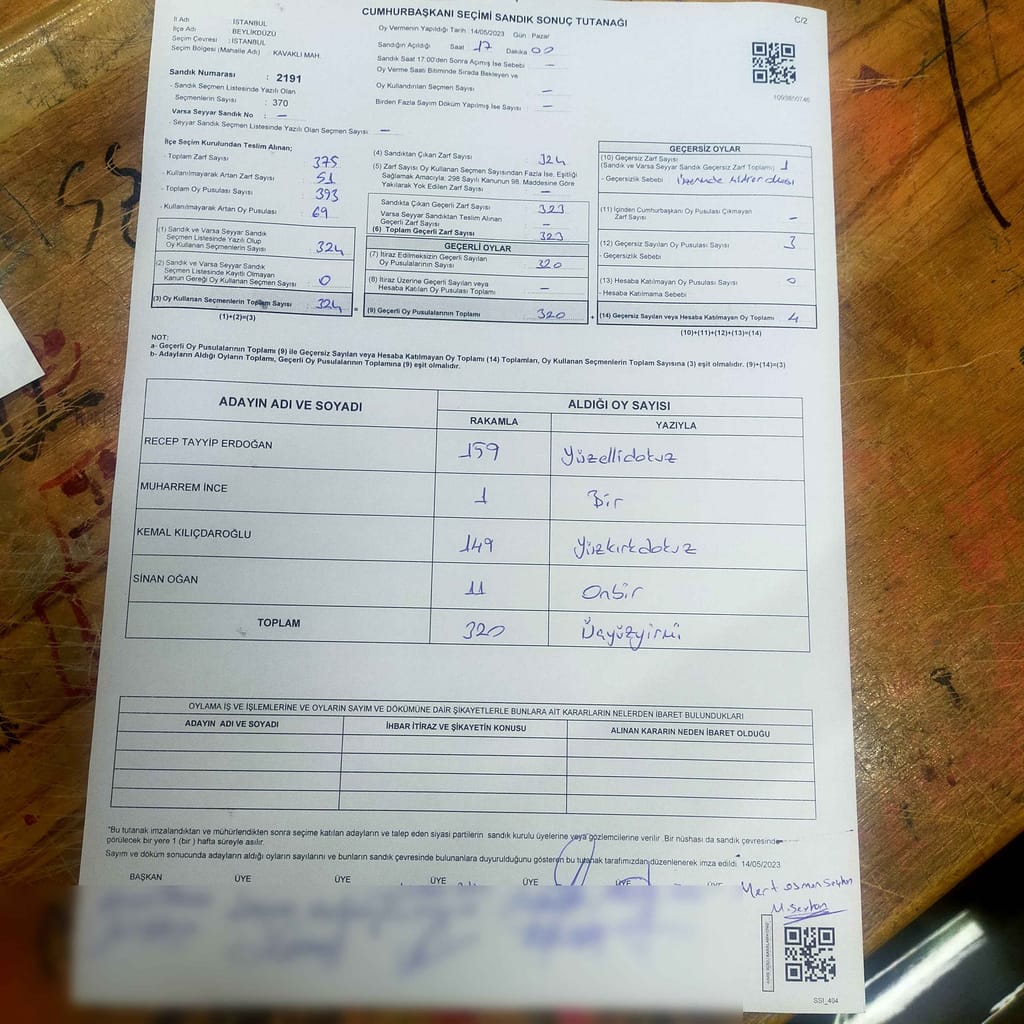 CUMHURBAŞKANI SEÇİMİ SANDIK SONUÇ TUTANAĞI
C/2
İl Adı : İSTANBUL
İlçe Adı : BEYLİKDÜZÜ
Seçim Çevresi : İSTANBUL
Seçim Bölgesi (Mahalle Adı) : KAVAKLI MAH.
Oy Vermenin Yapıldığı Tarih : 14/05/2023 Gün : Pazar
Sandığın Açıldığı Saat 17 Dakika 00
Sandık Saat 17.00'den Sonra Açımış İse Sebebi —
Oy Verme Saati Bitiminde Sırada Bekleyen ve
Oy Kullandırılan Seçmen Sayısı —
Birden Fazla Sayım Döküm Yapılmış İse Sayısı —
1093850746
Sandık Numarası : 2191
- Sandık Seçmen Listesinde Yazılı Olan
Seçmenlerin Sayısı : 370
Varsa Seyyar Sandık No : —
- Seyyar Sandık Seçmen Listesinde Yazılı Olan Seçmen Sayısı : —
İlçe Seçim Kurulundan Teslim Alınan;
- Toplam Zarf Sayısı : 375
- Kullanılmayarak Artan Zarf Sayısı : 51
- Toplam Oy Pusulası Sayısı : 393
- Kullanılmayarak Artan Oy Pusulası : 69
(1) Sandık ve Varsa Seyyar Sandık
Seçmen Listesinde Yazılı Olup
Oy Kullanan Seçmenlerin Sayısı : 324
(2) Sandık ve Varsa Seyyar Sandık
Seçmen Listesinde Kayıtlı Olmayan
Kanun Gereği Oy Kullanan Seçmen Sayısı : 0
(3) Oy Kullanan Seçmenlerin Toplam Sayısı : 324
(1)+(2)=(3)
(4) Sandıktan Çıkan Zarf Sayısı : 324
(5) Zarf Sayısı Oy Kullanan Seçmen Sayısından Fazla İse, Eşitliği
Sağlamak Amacıyla; 298 Sayılı Kanunun 98. Maddesine Göre
Yakılarak Yok Edilen Zarf Sayısı : —
Sandıkta Çıkan Geçerli Zarf Sayısı : 323
Varsa Seyyar Sandıktan Teslim Alınan
Geçerli Zarf Sayısı : —
(6) Toplam Geçerli Zarf Sayısı : 323
GEÇERLİ OYLAR
(7) İtiraz Edilmeksizin Geçerli Sayılan
Oy Pusulalarının Sayısı : 320
(8) İtiraz Üzerine Geçerli Sayılan veya
Hesaba Katılan Oy Pusulası Toplamı : —
= (9) Geçerli Oy Pusulalarının Toplamı : 320 +
GEÇERSİZ OYLAR
(10) Geçersiz Zarf Sayısı
(Sandık ve Varsa Seyyar Sandık Geçersiz Zarf Toplamı) : 1
- Geçersizlik Sebebi : Üzerinde
(11) İçinden Cumhurbaşkanı Oy Pusulası Çıkmayan
Zarf Sayısı : —
(12) Geçersiz Sayılan Oy Pusulası Sayısı : 3
- Geçersizlik Sebebi
(13) Hesaba Katılmayan Oy Pusulası Sayısı : 0
- Hesaba Katılmama Sebebi
(14) Geçersiz Sayılan veya Hesaba Katılmayan Oy Toplamı : 4
(10)+(11)+(12)+(13)=(14)
NOT:
a- Geçerli Oy Pusulalarının Toplamı (9) ile Geçersiz Sayılan veya Hesaba Katılmayan Oy Toplamı (14) Toplamları, Oy Kullanan Seçmenlerin Toplam Sayısına (3) eşit olmalıdır. (9)+(14)=(3)
b- Adayların Aldığı Oyların Toplamı, Geçerli Oy Pusulalarının Toplamına (9) eşit olmalıdır.
ADAYIN ADI VE SOYADI
ALDIĞI OY SAYISI
RAKAMLA YAZIYLA
RECEP TAYYİP ERDOĞAN 159 Yüzellidokuz
MUHARREM İNCE 1 Bir
KEMAL KILIÇDAROĞLU 149 Yüzkırkdokuz
SİNAN OĞAN 11 Onbir
TOPLAM 320 Üçyüzyirmi
OYLAMA İŞ VE İŞLEMLERİNE VE OYLARIN SAYIM VE DÖKÜMÜNE DAİR ŞİKAYETLERLE BUNLARA AİT KARARLARIN NELERDEN İBARET BULUNDUKLARI
ADAYIN ADI VE SOYADI İHBAR İTİRAZ VE ŞİKAYETİN KONUSU ALINAN KARARIN NEDEN İBARET OLDUĞU
"Bu tutanak imzalandıktan ve mühürlendikten sonra seçime katılan adayların ve talep eden siyasi partilerin sandık kurulu üyelerine veya gözlemcilerine verilir. Bir nüshası da sandık çevresinde
görülecek bir yere 1 (bir ) hafta süreyle asılır.
Sayım ve döküm sonucunda adayların aldığı oyların sayılarını ve bunların sandık çevresinde bulunanlara duyurulduğunu gösteren bu tutanak tarafımızdan düzenlenerek imza edildi. 14/05/2023
BAŞKAN ÜYE ÜYE ÜYE ÜYE ÜYE ÜYE
Mert Osman
SSI_404